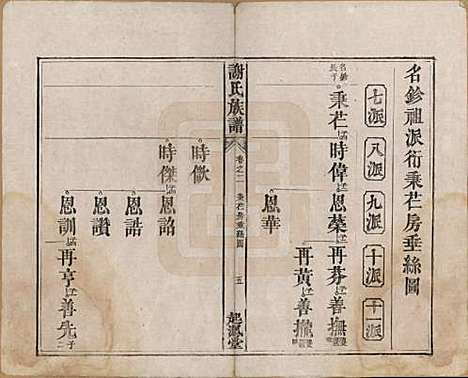 名鉁祖派衍秉芒房垂絲圖
七派
八派
九派
十派
十一派
名鉁
長子
秉芒
時偉
恩榮
再芬
善撫
恩華
再黃
善攏
謝氏族譜
卷之二
秉芒房垂絲圖
五
起源堂
時歆
時傑
恩詔
恩誥
恩讚
恩訓
再亨
善先